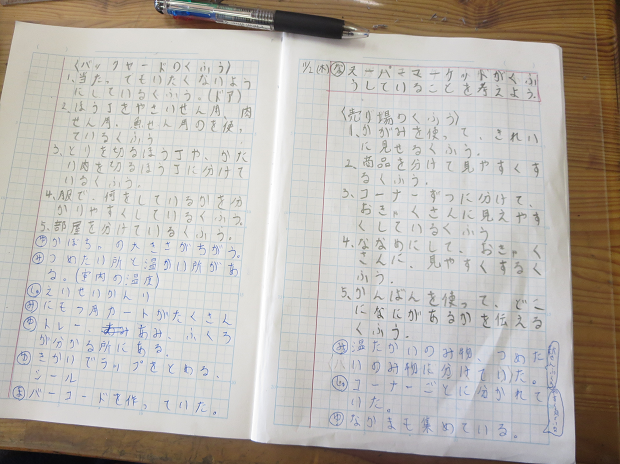 〈バックヤードのくふう〉
1、当たってもいたくないよう
にしているくふう。(ドア)
2、ほう丁をやさいせん用、肉
せん用、魚せん用のを使っ
ているくふう
3、とりを切るほう丁や、かた
い肉を切るほう丁に分けて
いるくふう。
4、ABCで、何をしているかを分
かりやすくしているくふう。
5、部屋を分けているくふう。
かぼちゃの大きさがちがう。
つめたい所と温かい所があ
る。(室内の温度)
えいせいかんり
にもつ用カートがたくさん
トレー あみ、ふくろ
が分かる所にある。
きかいでラップをとめる。
シール
バーコードを作っていた。
11/2(木) な スーパーマーケットがくふ
うしていることを考えよう。
〈売り場のくふう〉
1、かがみを使って、きれい
に見せるくふう。
2、商品を分けて見やすくす
るくふう。
3、コーナーずつに分けて、
おきゃくさんに見えやす
くしているくふう
4、ななめにして、おきゃく
さんに、見やすくするく
ふう。
5、かんばんを使って、どこ
になにがあるかを伝える
くふう。
み 温たかいのみ物、つめた
いのみ物に分けていた。
コーナーごとに分かれて
いた。
ゆ なかまも集めている。